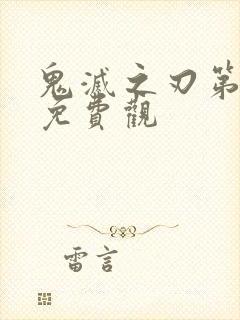 鬼滅之刃第
免費觀
雷言